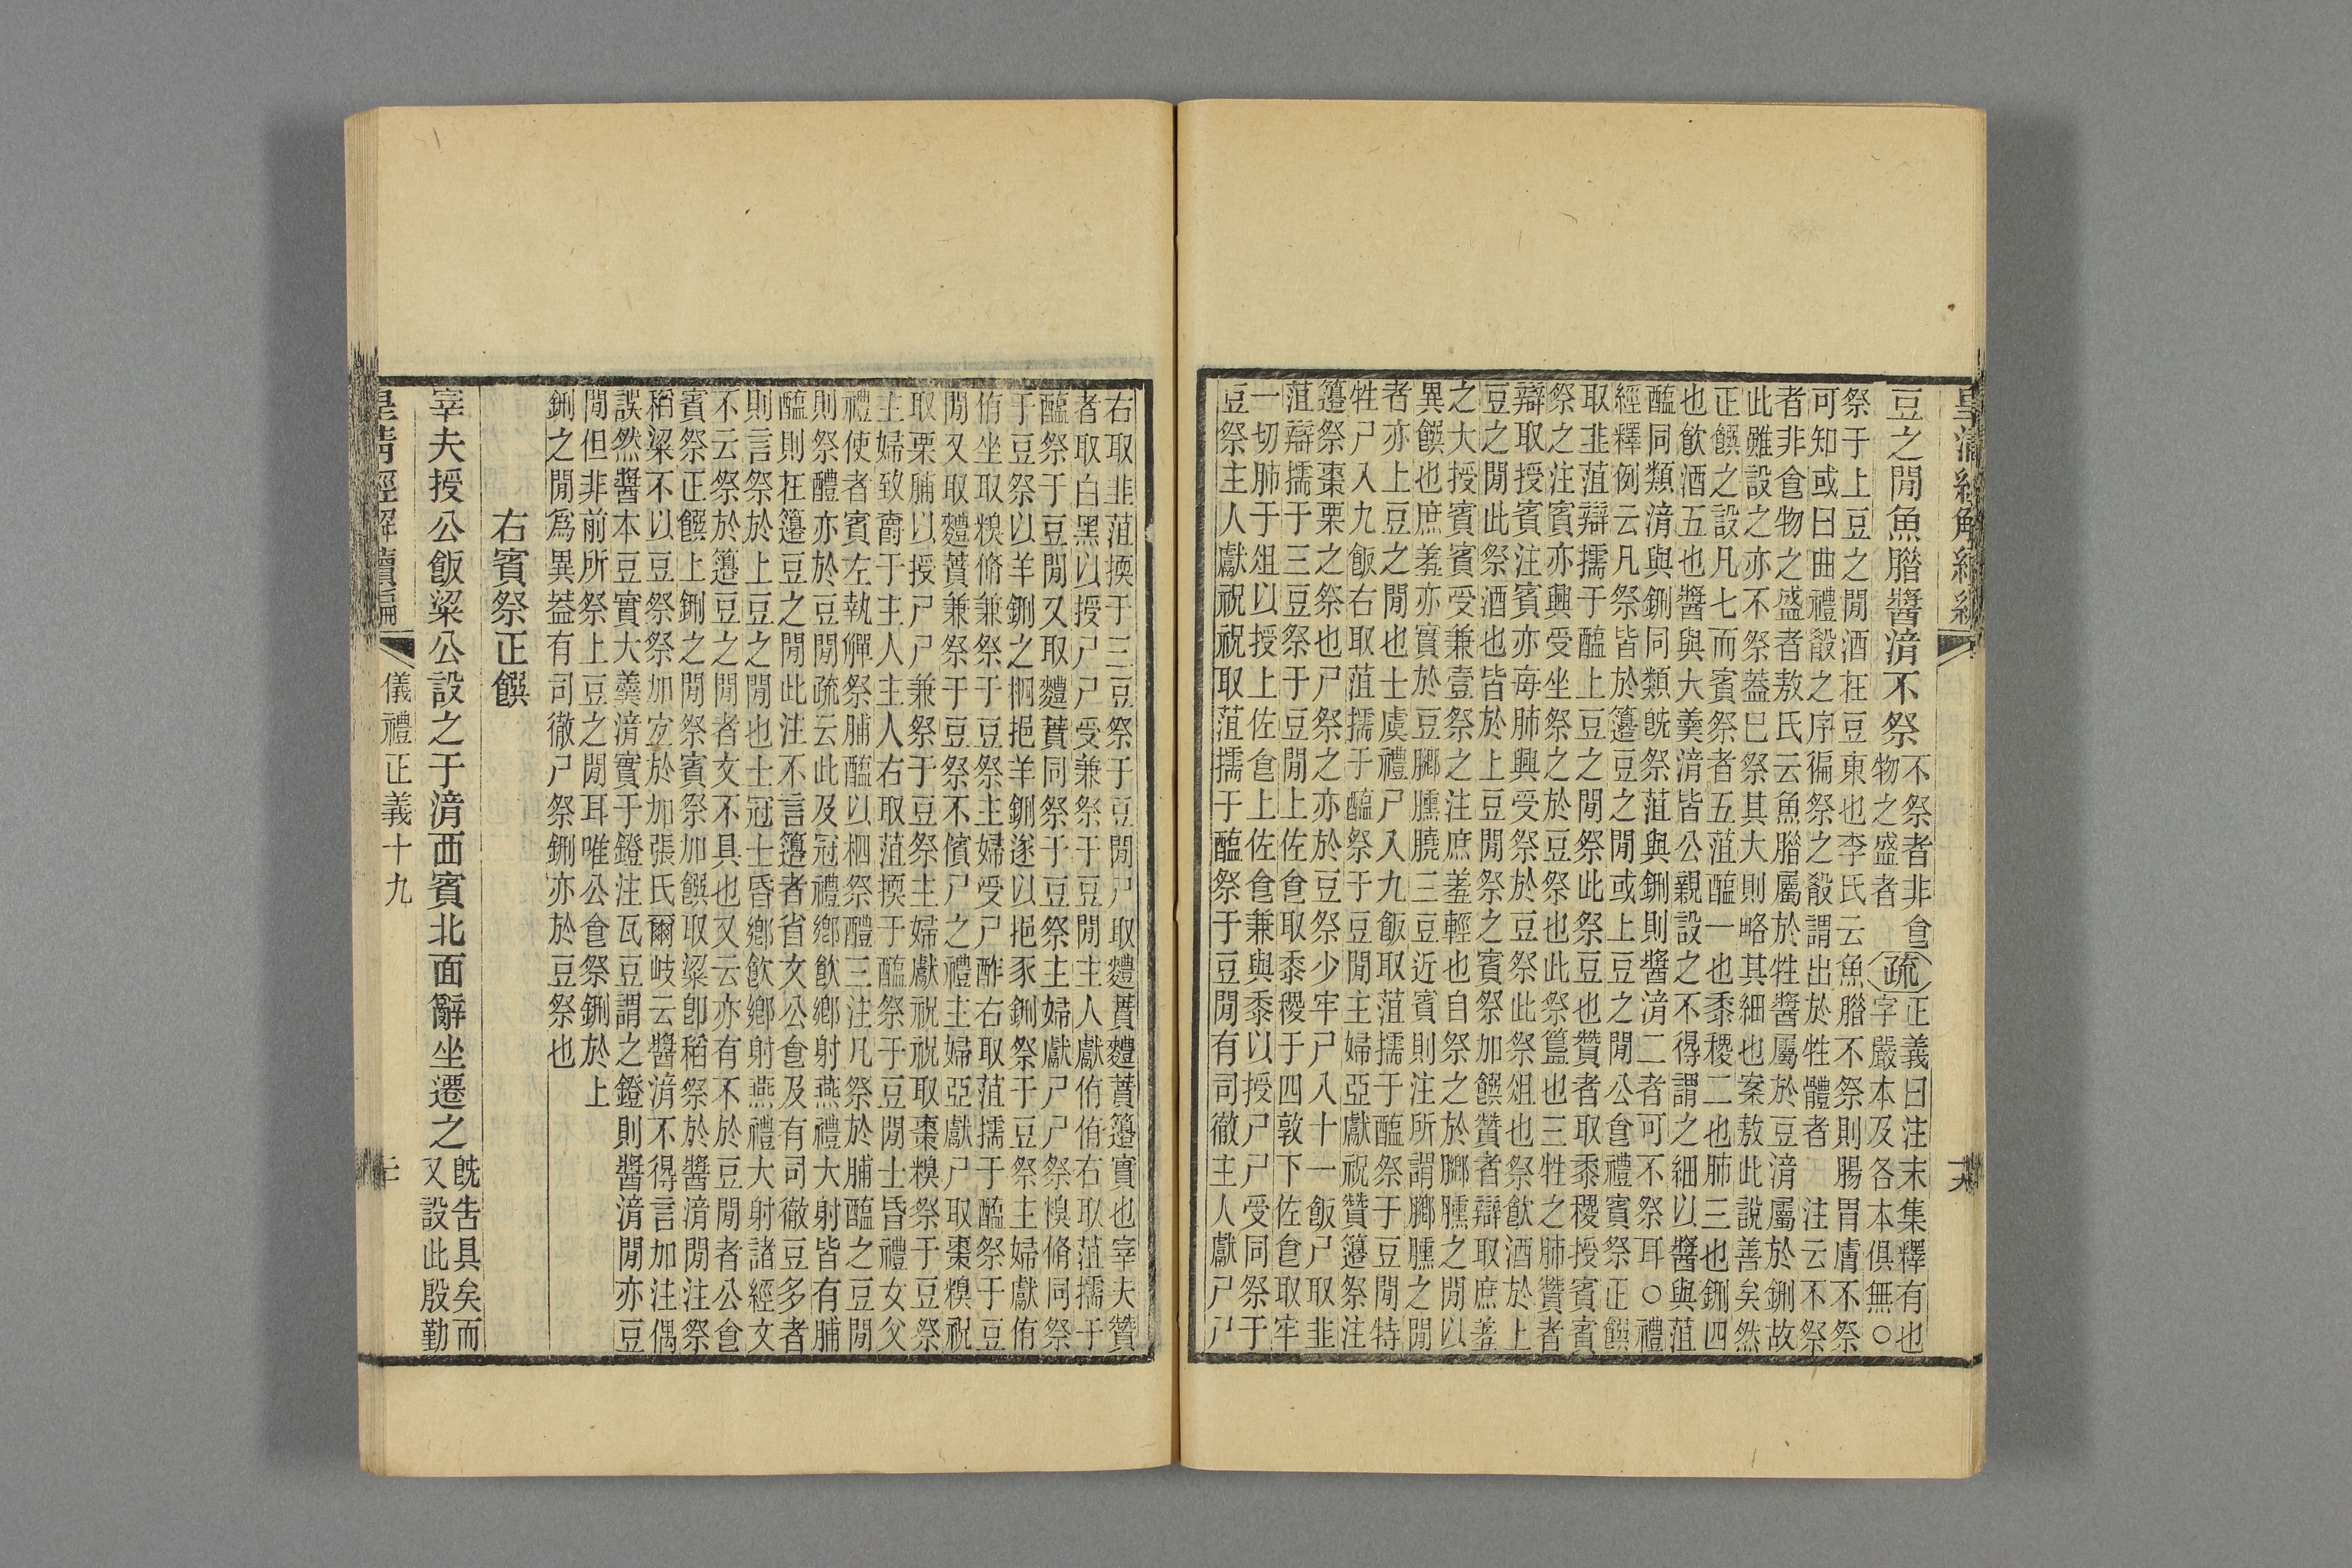 皇清經解續編
十九
豆之閒魚腊醬湆不祭
不祭者非食
物之盛者
疏
正義曰注末集釋有也
字嚴本及各本俱無○
祭于上豆之閒酒在豆東也李氏云魚腊不祭則腸胃膚不祭
可知或曰曲禮殽之序徧祭之殽謂出於牲體者注云不祭
者非食物之盛者敖氏云魚腊屬於牲醬屬於豆湆屬於鉶故
此雖設之亦不祭葢巳祭其大則略其細也案敖此說善矣然
正饌之設凡七而賓祭者五菹醢一也黍稷二也肺三也鉶四
也飮酒五也醬與大羹湆皆公親設之不得謂之細以醬與菹
醢同類湆與鉶同類旣祭菹與鉶則醬湆二者可不祭耳○禮
經釋例云凡祭皆於籩豆之閒或上豆之閒公食禮賓祭正饌
取韭菹辯擩于醢上豆之閒祭此祭豆也贊者取黍稷授賓賓
祭之注賓亦興受坐祭之於豆祭也此祭簋也三牲之肺贊者
辯取授賓注賓亦每肺興受祭於豆祭此祭俎也祭飮酒於上
豆之閒此祭酒也皆於上豆閒祭之賓祭加饌贊者辯取庶羞
之大授賓賓受兼壹祭之注庶羞輕也自祭之於膷臐之閒以
異饌也庶羞亦實於豆膷臐膮三豆近賓則注所謂膷臐之閒
者亦上豆之閒也士虞禮尸入九飯取菹擩于醢祭于豆閒特
牲尸入九飯右取菹擩于醢祭于豆閒主婦亞獻祝贊籩祭注
籩祭棗栗之祭也尸祭之亦於豆祭少牢尸入十一飯尸取韭
菹辯擩于三豆祭于豆閒上佐食取黍稷于四敦下佐食取牢
一切肺于俎以授上佐食上佐食兼與黍以授尸尸受同祭于
豆祭主人獻祝祝取菹擩于醢祭于豆閒有司徹主人獻尸尸
右取韭菹㨎于三豆祭于豆閒尸取麷蕡麷蕡籩實也宰夫贊
者取白黑以授尸尸受兼祭于豆閒主人獻侑侑右取菹擩于
醢祭于豆閒又取麷蕡同祭于豆祭主婦獻尸尸祭糗脩同祭
于豆祭以羊鉶之柶挹羊鉶遂以挹豕鉶祭于豆祭主婦獻侑
侑坐取糗脩兼祭于豆祭主婦受尸酢右取菹擩于醢祭于豆
閒又取麷蕡兼祭于豆祭不儐尸之禮主婦亞獻尸取棗糗祝
取栗脯以授尸尸兼祭于豆祭主婦獻祝祝取棗糗祭于豆祭
主婦致爵于主人主人右取菹㨎于醢祭于豆閒士昏禮女父
禮使者賓左執觶祭脯醢以柶祭醴三注凡祭於脯醢之豆閒
則祭醴亦於豆閒疏云此及冠禮鄉飮鄉射燕禮大射皆有脯
醢則在籩豆之閒此注不言籩者省文公食及有司徹豆多者
則言祭於上豆之閒也士冠士昏鄉飮鄉射燕禮大射諸經文
不云祭於籩豆之閒者文不具也又云亦有不於豆閒者公食
賓祭正饌上鉶之閒祭賓祭加饌取粱卽稻祭於醬湆閒注祭
稻粱不以豆祭祭加宜於加張氏爾岐云醬湆不得言加注偶
誤然醬本豆實大羹湆實于鐙注瓦豆謂之鐙則醬湆閒亦豆
閒但非前所祭上豆之閒耳唯公食祭鉶於上
鉶之閒爲異葢有司徹尸祭鉶亦於豆祭也
右賓祭正饌
宰夫授公飯粱公設之于湆西賓北面辭坐遷之
旣告具矣而
又設此殷勤
皇清經解續編
儀禮正義十九